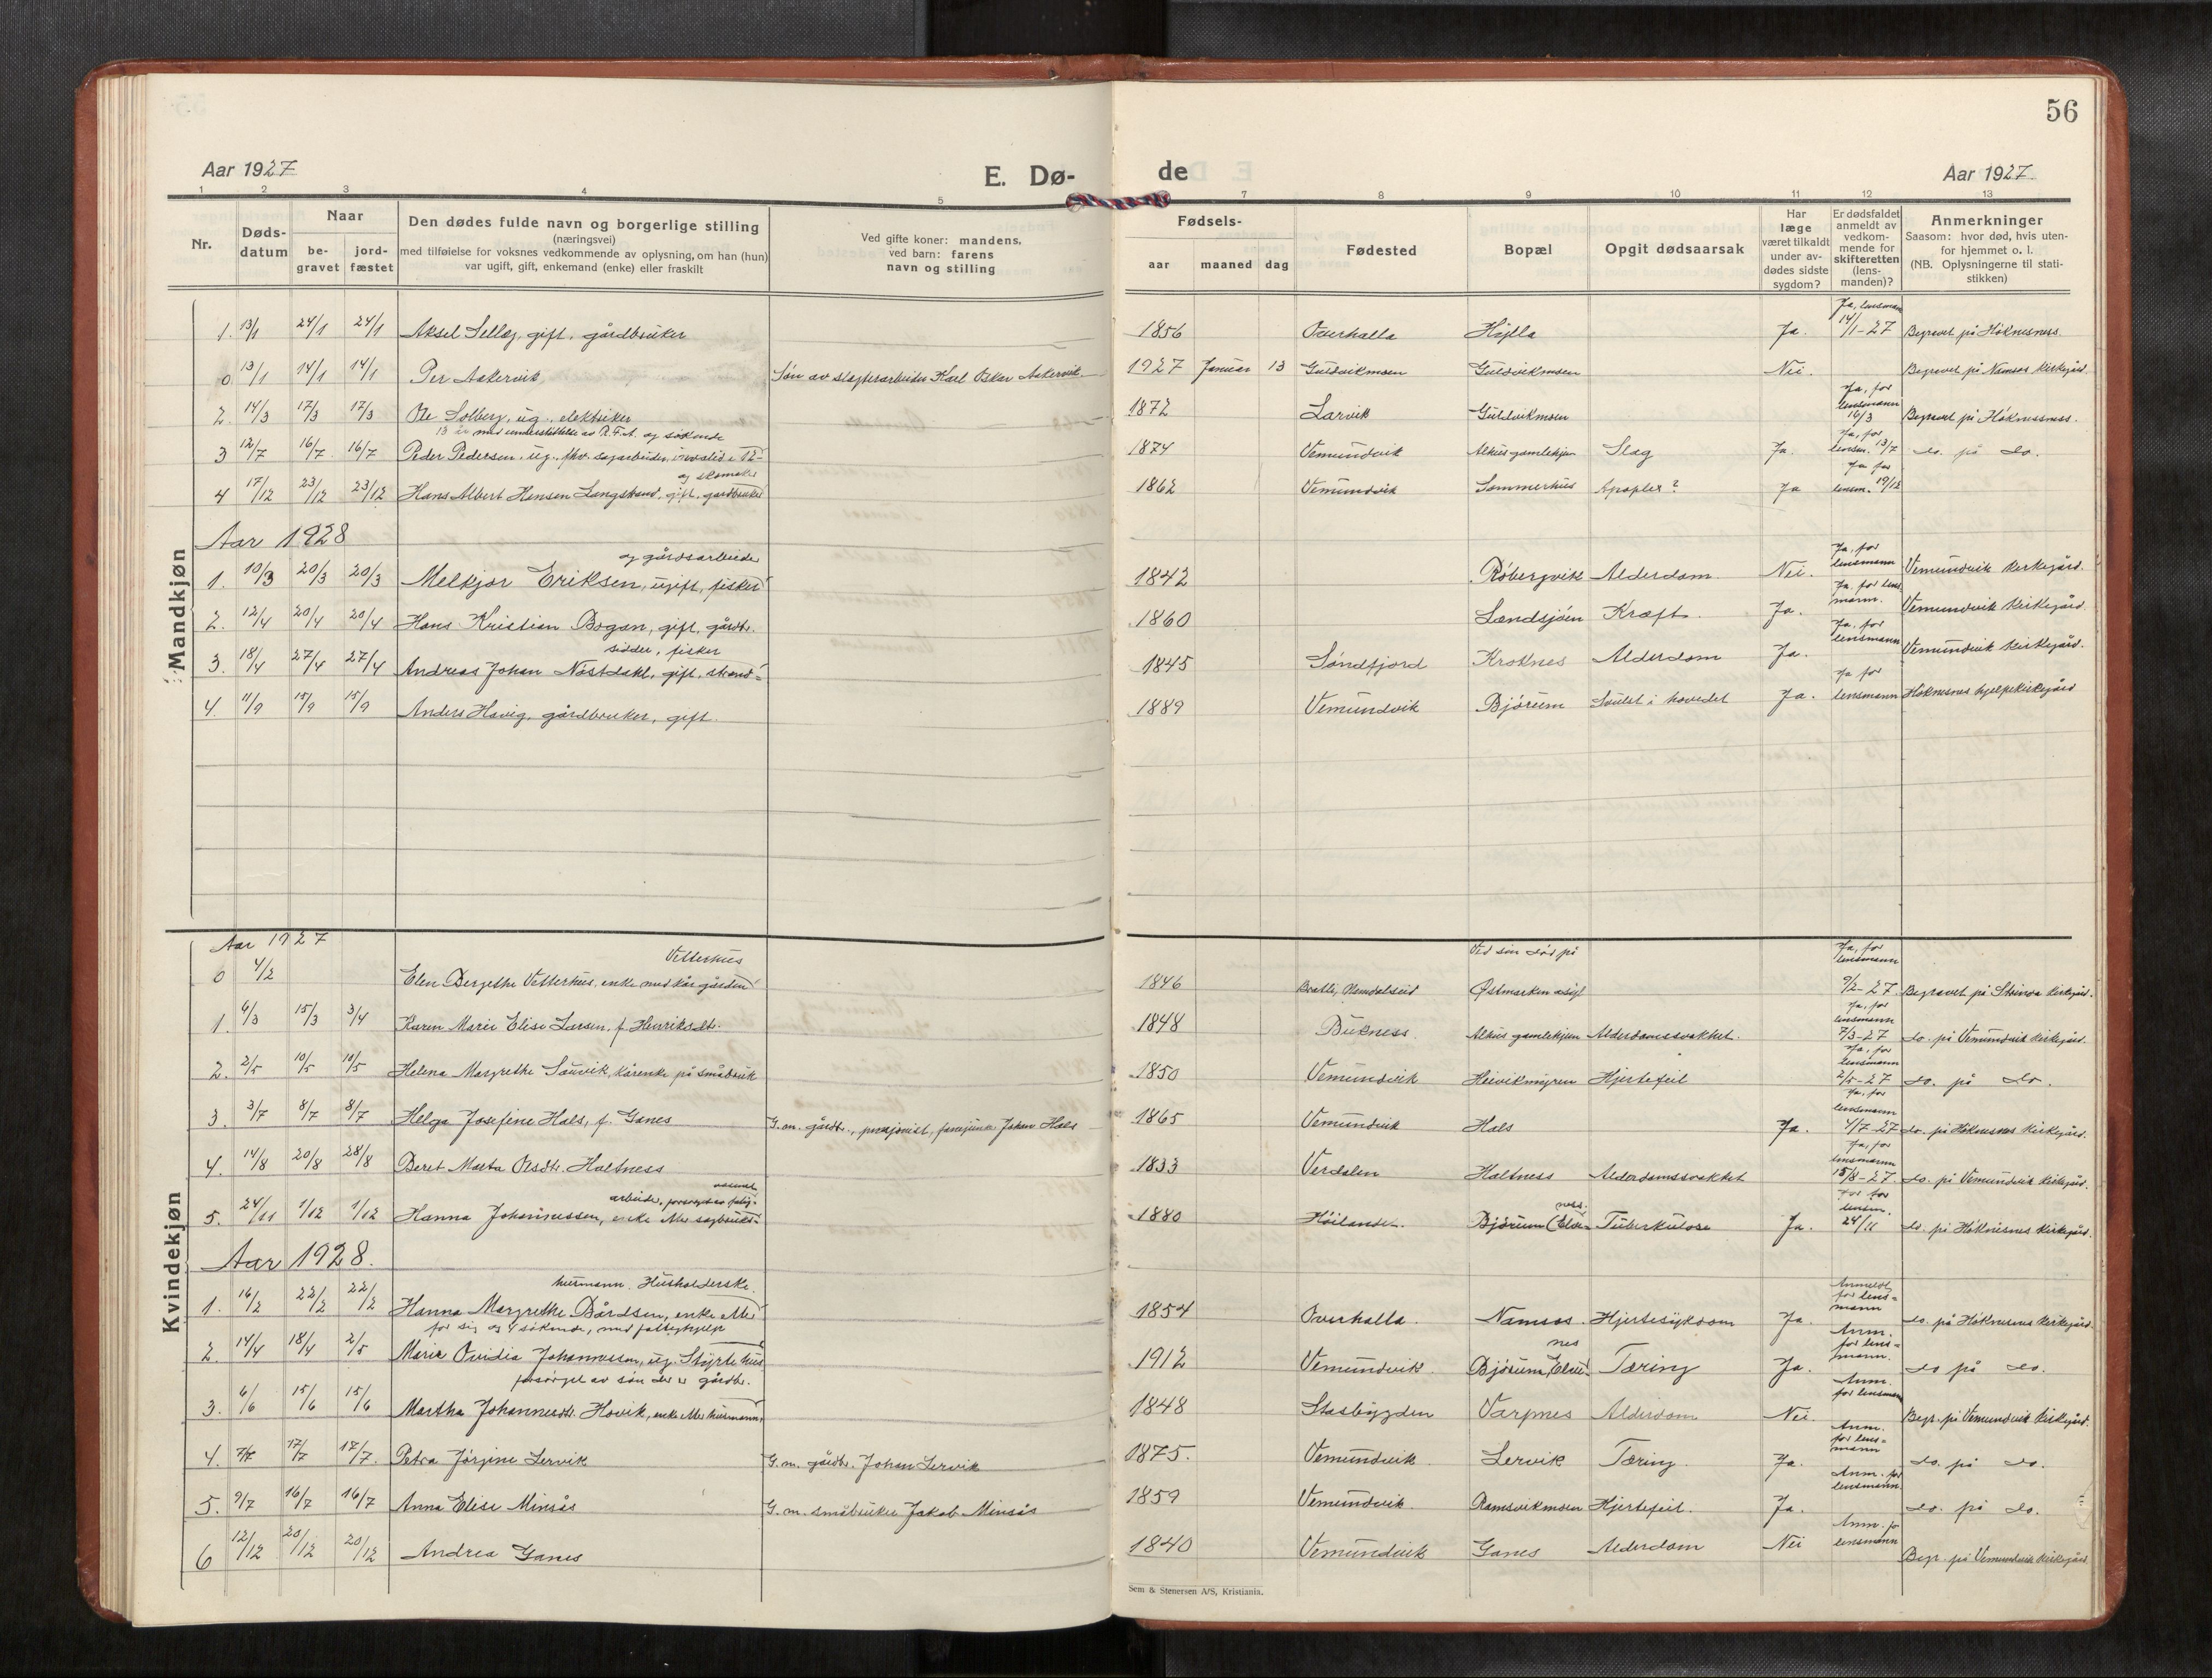 56
Aar 1927
E. Dø-
de
Aar 1927
1 2 3 4 5 7 8 9 10 11 12 13
Nr.
Døds-
datum
Naar
be-
gravet
jord-
fæstet
Den dødes fulde navn og borgerlige stilling
(næringsvei)
med tilføielse for voksnes vedkommende av oplysning, om han (hun)
var ugift, gift, enkemand (enke) eller fraskilt
Ved gifte koner: mandens,
ved barn: farens
navn og stilling
Fødsels-
aar maaned dag
Fødested
Bopæl
Opgit dødsaarsak
Har
læge
været tilkaldt
under av-
dødes sidste
sygdom?
Er dødsfaldet
anmeldt av
vedkom-
mende for
skifteretten
(lens-
manden)?
Anmerkninger
Saasom: hvor død, hvis uten-
for hjemmet o. l.
(NB. Oplysningerne til stati-
stikken)
Mandkjøn
Ja, lensmann
1. 13/1 24/1 24/1 Aksel Sellæg, gift, gårdbruker 1856 Overhalla Højlla Ja. 14/1-27 Begravet på Høknesness.
0 13/1 14/1 14/1 Per Aakervik Søn av slagterarbeider Karl Oskar Aakervik 1927 Januar 13 Guldvikmoen Guldvikmoen Nei. Begravet på Namsos kirkegård
Ja, for
lensmann
2. 14/3 17/3 17/3 Ole Solberg, ug., elektriker 1872 Larvik Guldvikmoen 16/3 Begravet på Høknessness.
13 år med understøttelse av R.F.A. og søkende
Ja, for
3 12/7 16/7 16/7 Peder Pedersen, ug., fhv. sagarbeider, invalid i 12- 1874 Vemundvik Alhus gamlehjem Slag Ja. lensm. 13/7 do. på do.
og skomaker
Ja for
4 17/12 23/12 23/12 Hans Albert Hansen Langstrand, gift, gardbruker 1862 Vemundvik Sommerhus Apoplex? Ja lensm. 19/12
Aar 1928
og gårdsarbeider
Ja, for
lensmann
1. 10/3 20/3 20/3 Melkjor Eriksen, ugift, fisker 1842 Røbergvik Alderdom. Nei. Vemundvik kirkegård.
Ja, for lens
mann.
2. 12/4 20/4 20/4 Hans Kristian Bogan, gift, gårdbr. 1860 Landsjøen Kræft. Ja. Vemundvik kirkegård.
sidder, fisker
Ja, for
lensmann
3. 18/4 27/4 27/4 Andreas Johan Nøstdahl, gift, strand- 1845 Søndfjord Kroknes Alderdom Ja. Vemundvik kirkegård.
Ja for
4. 11/9 15/9 15/9 Anders Havig, gårdbruker, gift. 1889 Vemundvik Bjørum Svulst i hovedet Ja. lensmann Høknesnes hjelpekirkegård
Kvindekjøn
Aar 1927
Vetterhus
Ved sin død på
Ja, for
lensmann
0 4/2 Elen Bergethe Vetterhus, enke med kår gården 1846 Bratli, Namdalseid Østmarken asyl 9/2-27 Begravet på Strinda kirkegård.
Ja, for
lensmann
1. 6/3 15/3 3/4 Karen Marie Elise Larsen, f. Henriksdtr. 1848 Bukness Alhus gamlehjem Alderdomssvakhet. 7/3-27 do. på Vemundvik kirkegård.
Ja, for
lensmann
2. 2/5 10/5 10/5 Helena Margrethe Sauvik, kårenke på småbruk 1850 Vemundvik Heivikmyren Hjertefeil 2/5-27 do. på do.
Ja, for
lensmann
3. 3/7 8/7 8/7 Helga Josefine Hals, f. Ganes G.m. gårdbr., Johan Hals 1865 Vemundvik Hals Ja. 4/7-27 do. på Høknesnes kirkegård.
Ja, for
lensmann
4. 14/8 20/8 28/8 Beret Marta Olsdtr. Haltness 1833 Verdalen Haltness Alderdomssvakhet 15/8-27. do. på Vemundvik kirkegård.
arbeider, forsørget av fatig-
Ja for
lensm.
5. 24/11 1/12 1/12 Hanna Johannessen, enke efter sagbruks- 1880 Høilandet. Bjørum (Elve- Tuberkulose Ja. 24/11 do. på Høknesnes kirkegård.
Aar 1928.
husmann. Husholderske
Anmeldt
for lens-
mann
1. 16/2 22/2 22/2 Hanna Margrethe Bårdsen, enke efter 1854 Overhalla. Namsos. Hjertesykdom Ja. do. på Høknesnes kirkegård.
for sig og 4 søkende, med fattighjelp
nes
Anm.
for lens-
mann.
2. 14/4 18/4 2/5 Marie Ovidia Johannessen, ug. Styrte hus 1912 Vemundvik. Bjørum, Elve- Tæring Ja. do på do.
forsørget av søn der er gårdbr.
Anm.
for lensmann
3. 6/6 15/6 15/6 Martha Johannesdtr. Hovik, enke efter husmann, 1848 Stadsbygden Varpnes Alderdom Nei. Begr. på Vemundvik kirkegård.
Anm.
for lens-
mann
4. 7/7 17/7 17/7. Petra Jørgine Lervik G.m. gårdbr. Johan Lervik 1875. Vemundvik. Lervik Tæring. Ja. do. på do.
Anm. for
lensmann.
5. 9/7 16/7 16/7 Anna Elise Minsås G.m. småbruker Jakob Minsås 1859 Vemundvik. Ramsvikmoen Hjertefeil. Ja. do. på do.
Anm. for
lensmann
6 12/12 20/12 20/12 Andrea Ganes 1840 Vemundvik Ganes Alderdom Nei Begr. på Vemundvik kirkegård
Sem & Stenersen A/S, Kristiania.